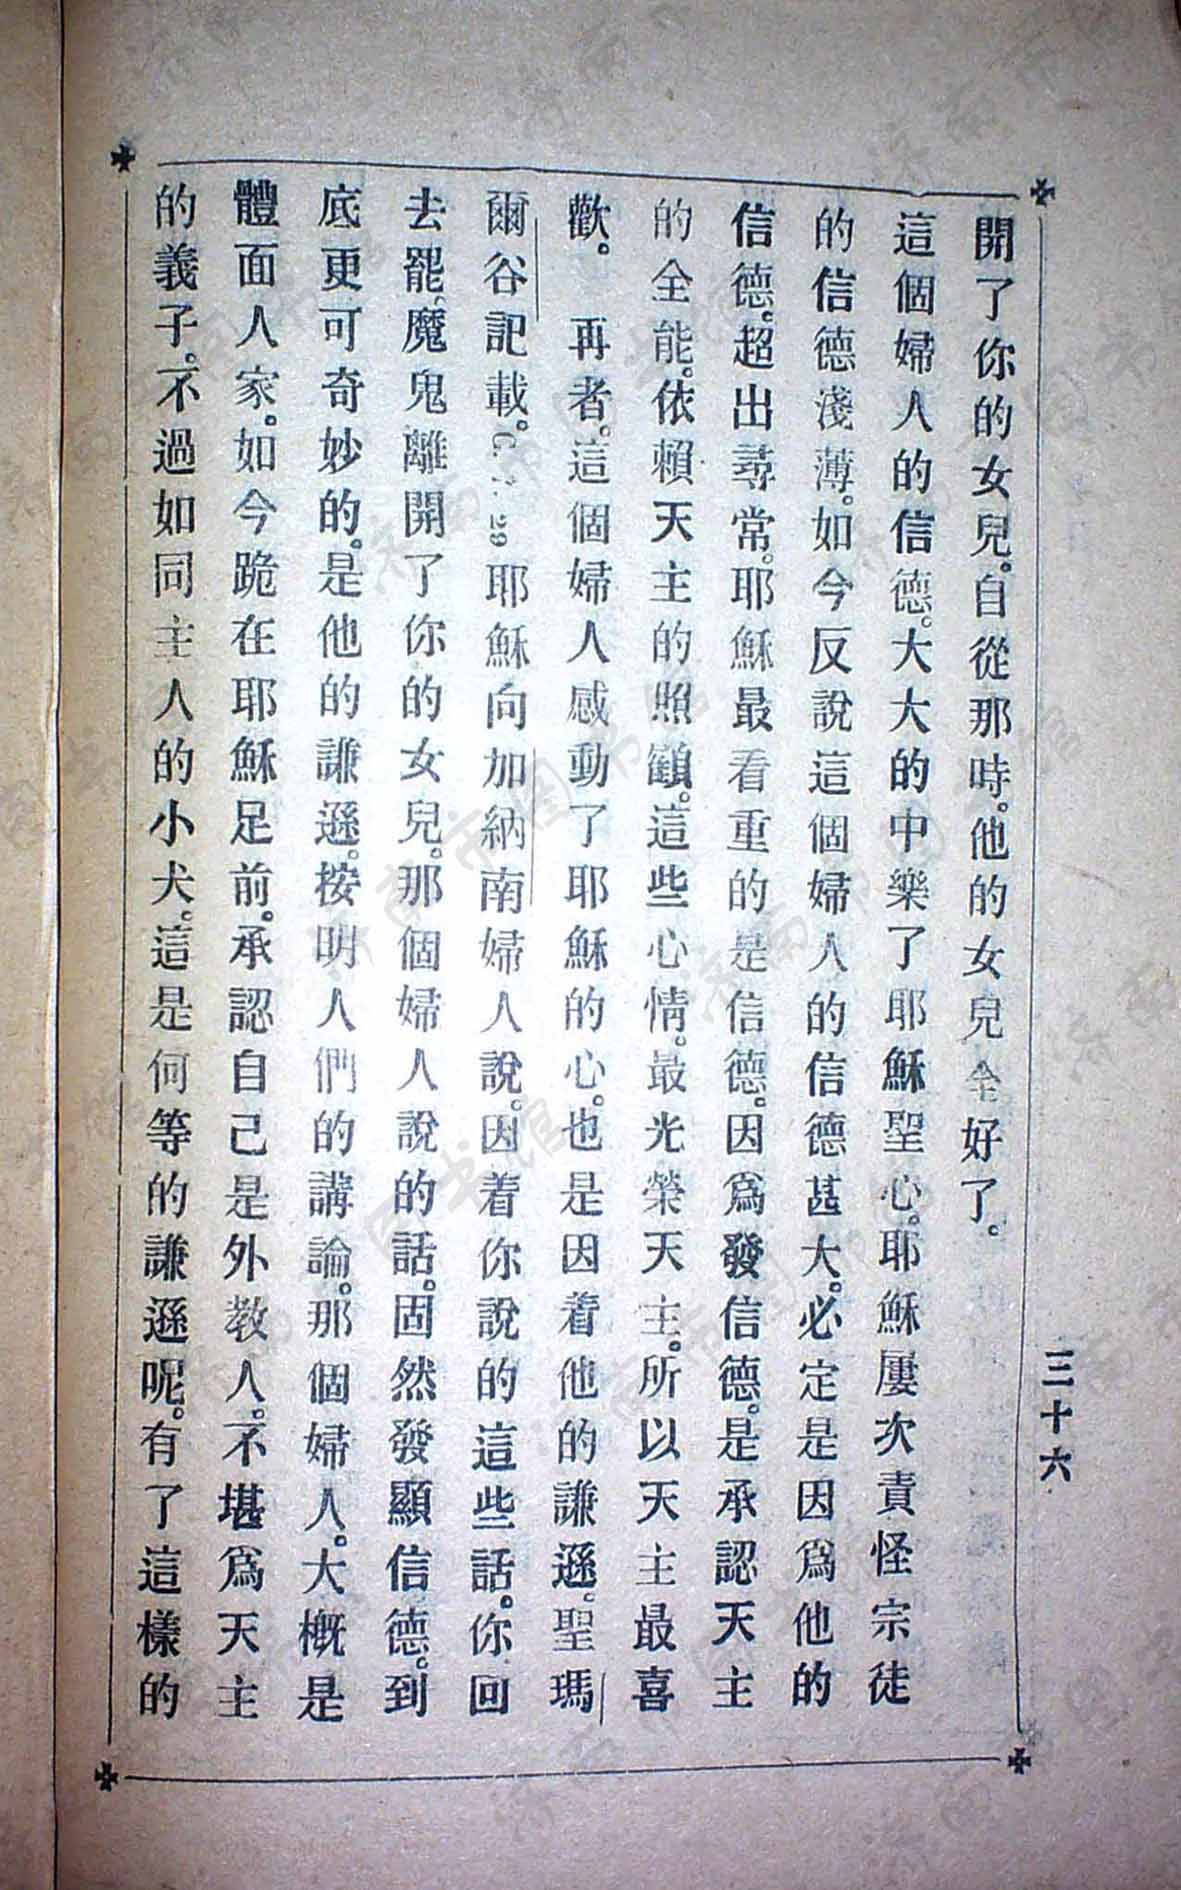 開了你的女兒。自從那時。他的女兒全好了。
這個婦人的信德。大大的中樂了耶穌聖心。耶穌屢次責怪宗徒
的信德淺薄。如今反說這個婦人的信德甚大。必定是因爲他的
信德。超出尋常。耶穌最看重的是信德。因爲發信德。是承認天主
的全能。依賴天主的照顧。這些心情。最光榮天主。所以天主最喜
歡。 再者。這個婦人感動了耶穌的心。也是因着他的謙遜。聖瑪
爾谷記載。29 耶穌向加納南婦人說。因着你說的這些話。你回
去罷。魔鬼離開了你的女兒。那個婦人說的話。固然發顯信德。到
底更可奇妙的。是他的謙遜。按明人們的講論。那個婦人。大概是
體面人家。如今跪在耶穌足前。承認自己是外教人。不堪爲天主
的義子。不過如同主人的小犬。這是何等的謙遜呢。有了這樣的
三十六
济南市图书馆